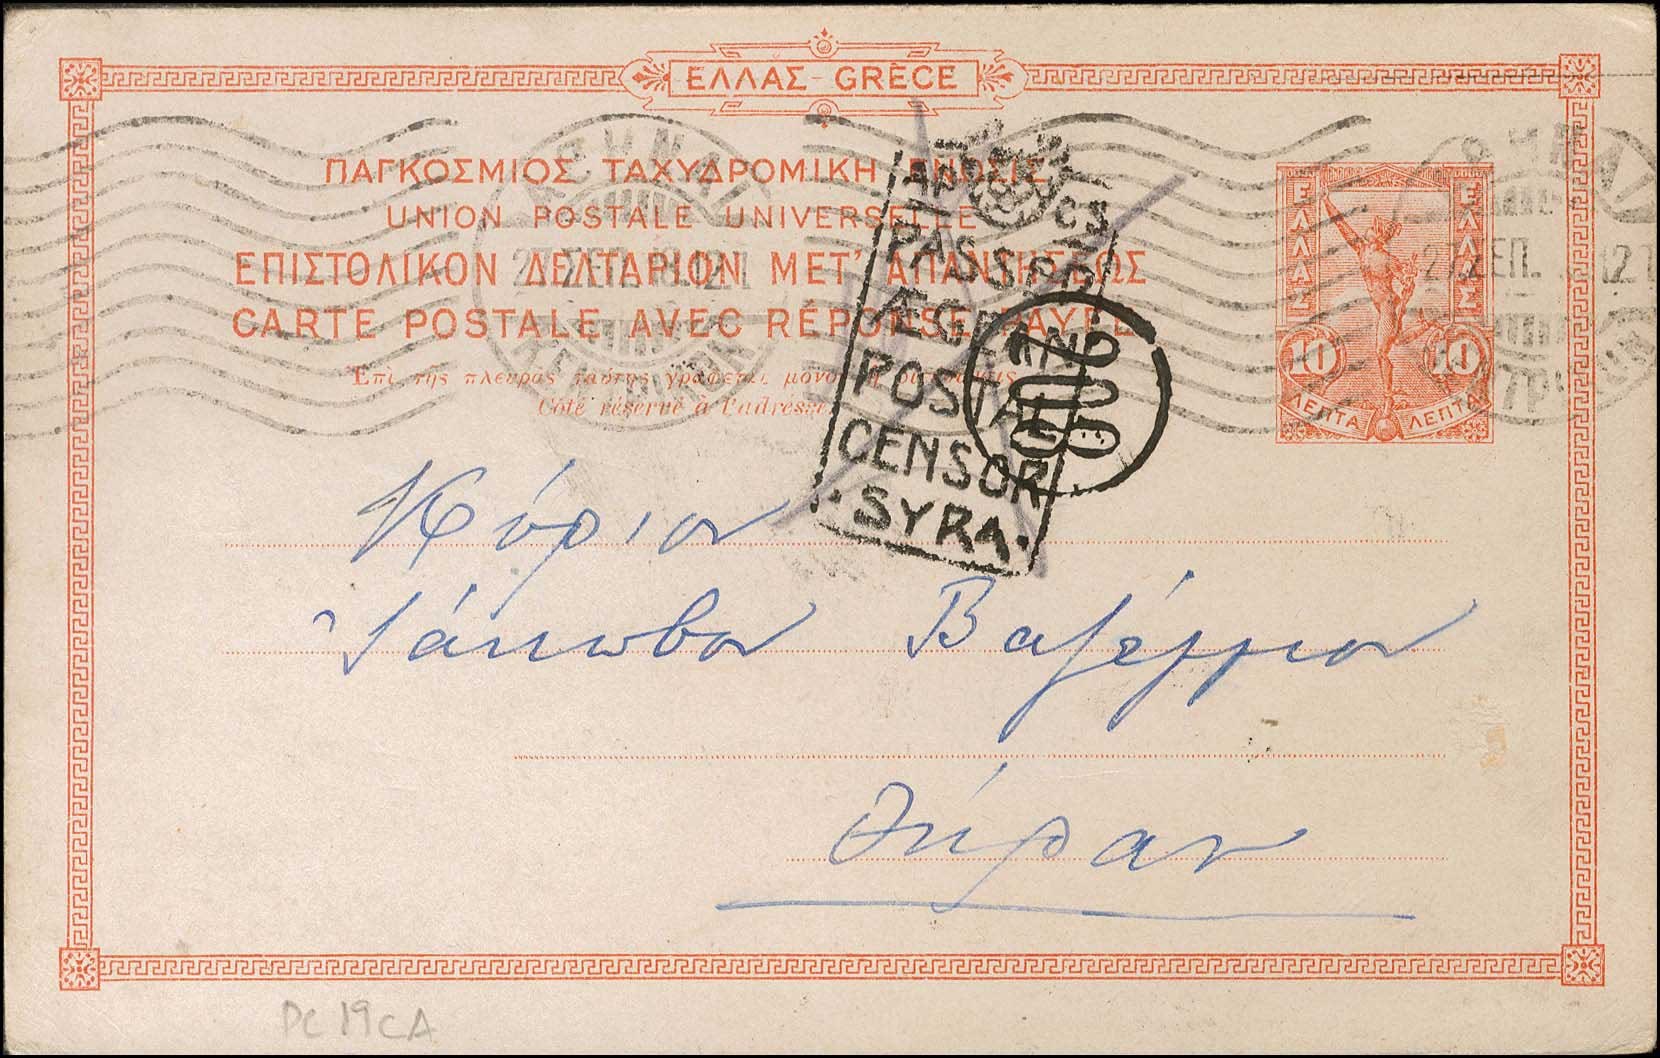 ΕΛΛΑΣ - GRÈCE
ΠΑΓΚΟΣΜΙΟΣ ΤΑΧΥΔΡΟΜΙΚΗ ΕΝΩΣΙΣ
UNION POSTALE UNIVERSELLE
ΕΠΙΣΤΟΛΙΚΟΝ ΔΕΛΤΑΡΙΟΝ ΜΕΤ' ΑΠΑΝΤΗΣΕΩΣ
CARTE POSTALE AVEC RÉPONSE PAYÉE
Ἐπὶ τῆς πλευρᾶς ταύτης γράφεται μόνον
Côté réservé à l'adresse
ΕΛΛΑΣ
ΕΛΛΑΣ
10
10
ΛΕΠΤΑ
ΛΕΠΤΑ
27 ΣΕΠ.
PASSED
ÆGEAN
POSTAL
CENSOR
· SYRA ·
Κύριον
Ἰάκωβον Βαζέγγιον
Θήραν
PC 19 CA